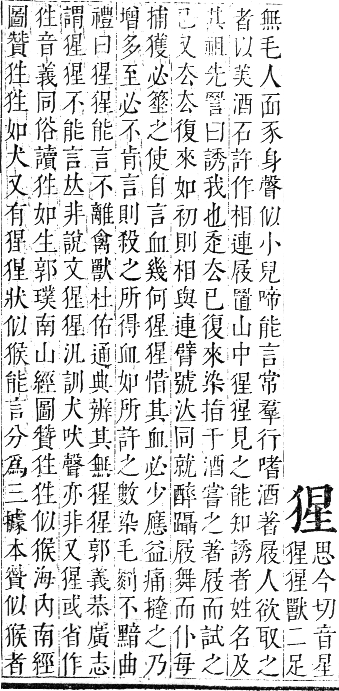 猩
思今切音星
猩猩獸二足
無毛人面豕身聲似小兒啼能言常羣行嗜酒著屐人欲取之
者以美酒石許作相連屐置山中猩猩見之能知誘者姓名及
其祖先詈曰誘我也亟厺已復來染指于酒嘗之著屐而試之
已又厺厺復來如初則相與連臂號泆同就醉躡屐舞而仆每
捕獲必箠之使自言血幾何猩猩惜其血必少應益痛撻之乃
增多至必不肯言則殺之所得血如所許之數染毛罽不黯曲
禮曰猩猩能言不離禽獸杜佑通典辨其無猩猩郭義恭廣志
謂猩猩不能言𠀤非說文猩猩汎訓犬吠聲亦非又猩或省作
狌音義同俗讀狌如生郭璞南山經圖贊狌狌似猴海內南經
圖贊狌狌如犬又有猩猩狀似猴能言分爲二據本贊似猴者